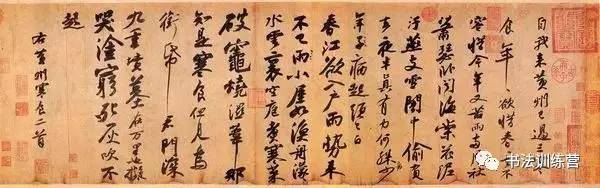 自我來黃州已過三寒
食年年欲惜春春去不
容惜今年又苦雨兩月秋
蕭瑟卧聞海棠花泥
汙燕支雪闇中偷負
去夜半真有力何殊少
年子病起頭已白
春江欲入戶雨勢來
不已雨小屋如漁舟濛濛
水雲裏空庖煮寒菜
破竈燒濕葦那
知是寒食但見烏
銜帋君門深
九重墳墓在萬里也擬
哭塗窮死灰吹不
起
右黃州寒食二首
书法训练营